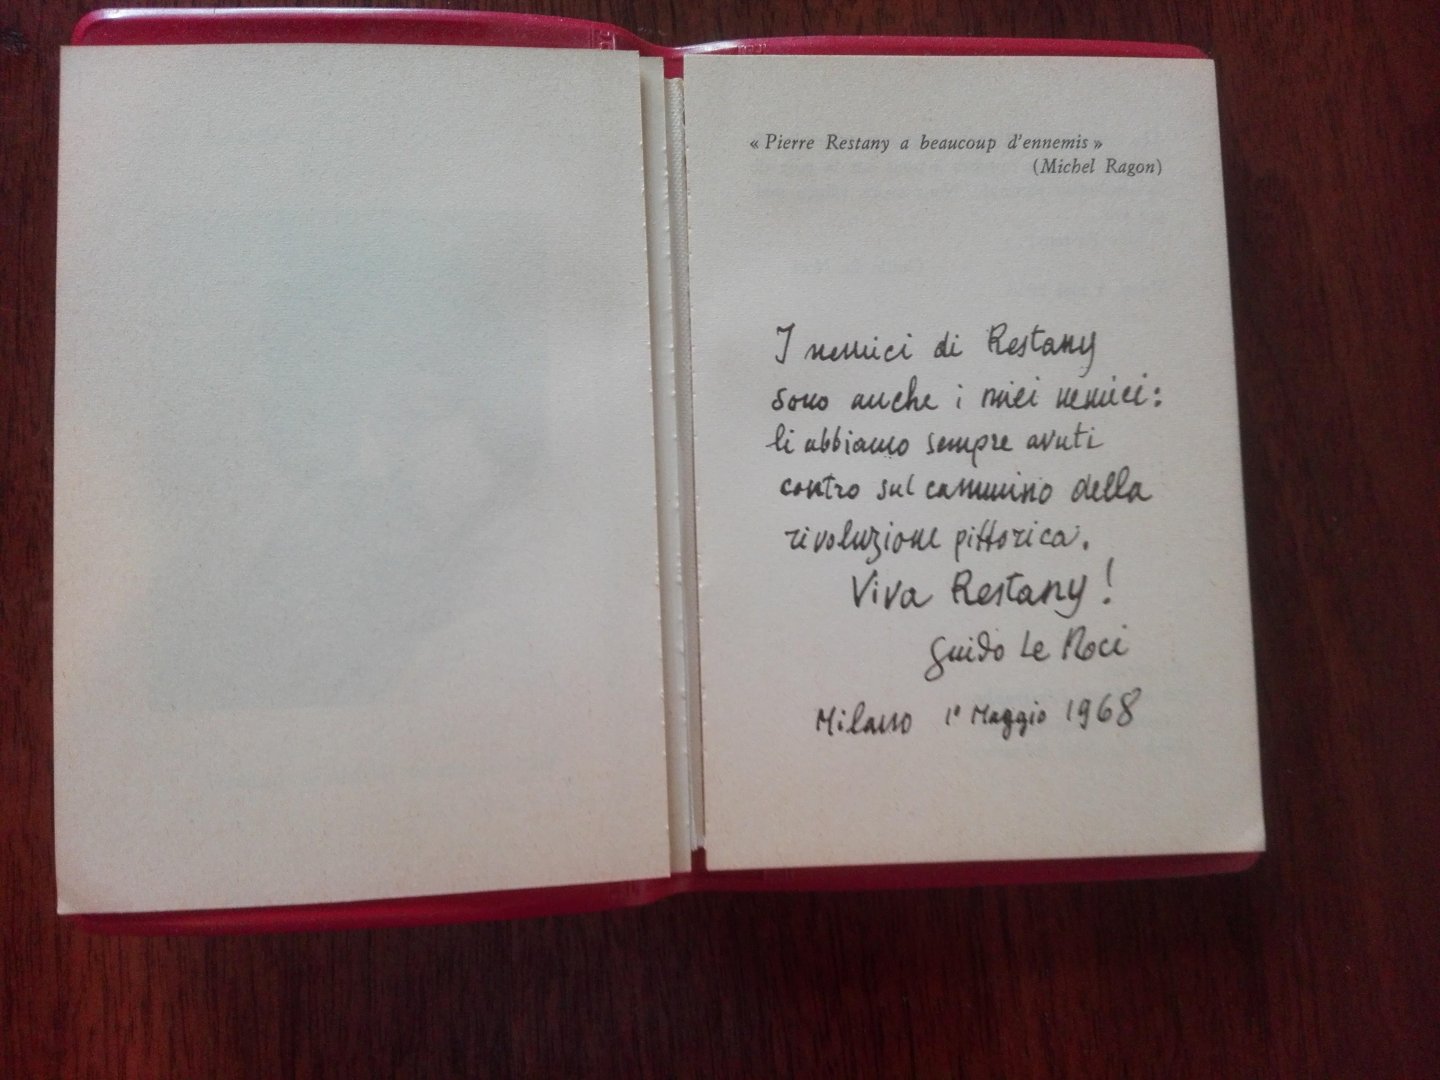 « Pierre Restany a beaucoup d'ennemis »
(Michel Ragon)
I nemici di Restany
sono anche i miei nemici:
li abbiamo sempre avuti
contro sul cammino della
rivoluzione pittorica.
Viva Restany!
Guido Le Noci
Milano 1° Maggio 1968